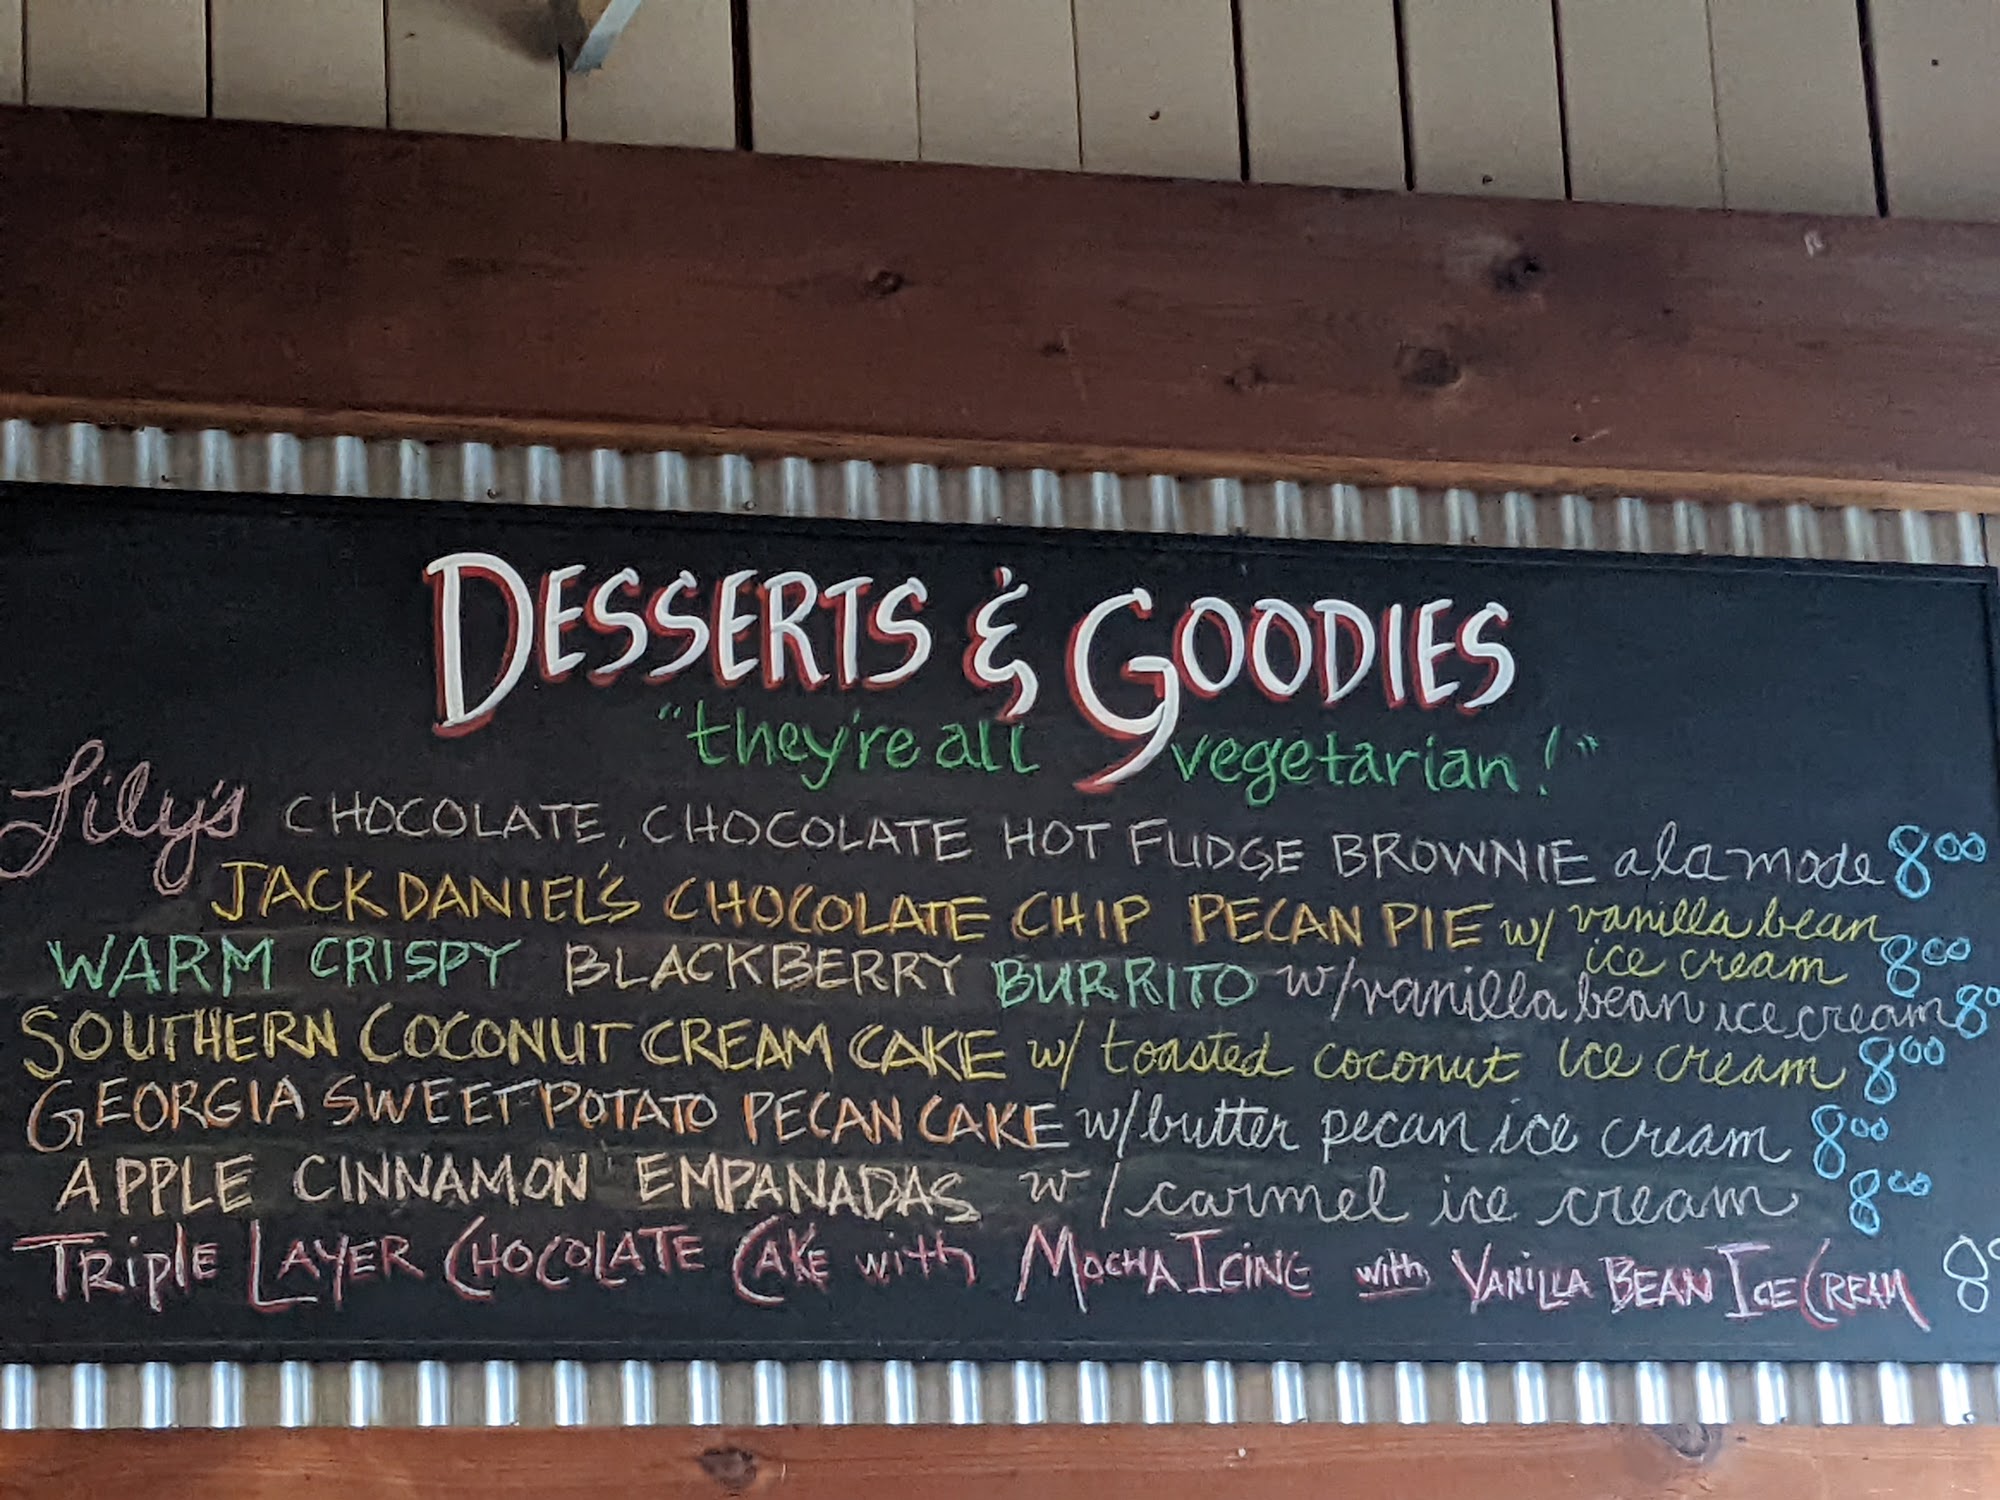 DESSERTS & GOODIES
"they're all vegetarian!"
Lily's CHOCOLATE, CHOCOLATE HOT FUDGE BROWNIE a la mode 8⁰⁰
JACK DANIEL'S CHOCOLATE CHIP PECAN PIE w/ vanilla bean
ice cream 8⁰⁰
WARM CRISPY BLACKBERRY BURRITO w/ vanilla bean ice cream 8⁰
SOUTHERN COCONUT CREAM CAKE w/ toasted coconut ice cream 8⁰⁰
GEORGIA SWEET POTATO PECAN CAKE w/ butter pecan ice cream 8⁰⁰
APPLE CINNAMON EMPANADAS w/ carmel ice cream 8⁰⁰
TRIPLE LAYER CHOCOLATE CAKE with MOCHA ICING with VANILLA BEAN ICE CREAM 8⁰